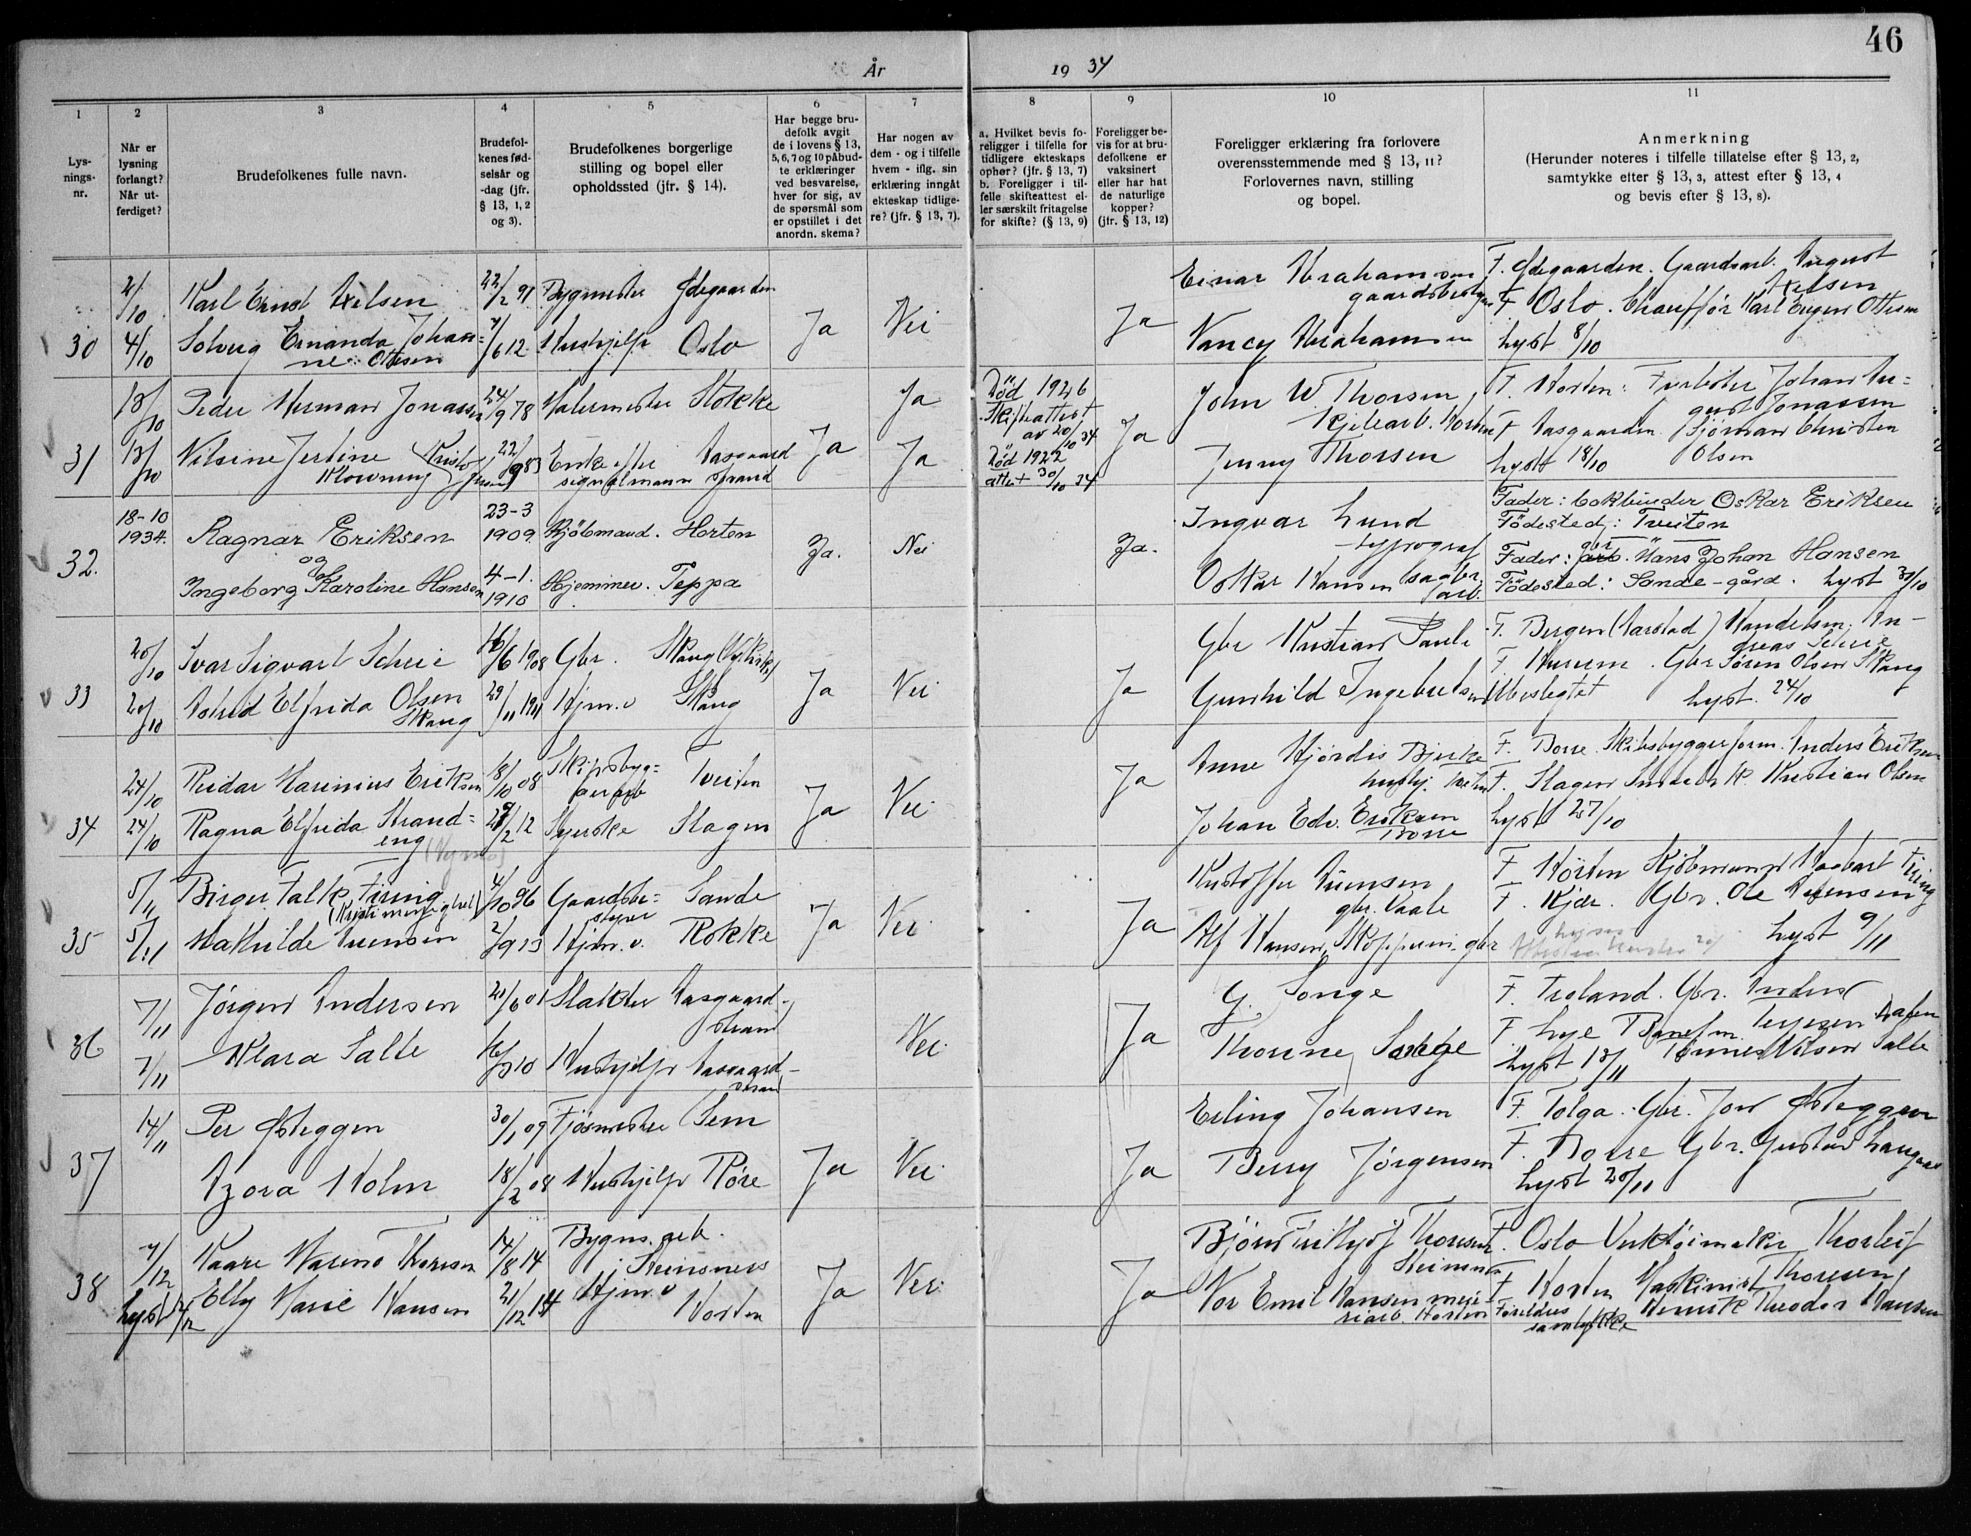 46
År 1934
1
2
3
4
5
6
7
8
9
10
11
Lys-
nings-
nr.
Når er
lysning
forlangt?
Når ut-
ferdiget?
Brudefolkenes fulle navn.
Brudefol-
kenes fød-
selsår og
-dag (jfr.
§ 13, 1, 2
og 3).
Brudefolkenes borgerlige
stilling og bopel eller
opholdssted (jfr. § 14).
Har begge bru-
defolk avgit
de i lovens § 13,
5, 6, 7 og 10 påbud-
te erklæringer
ved besvarelse,
hver for sig, av
de spørsmål som
er opstillet i det
anordn. skema?
Har nogen av
dem - og i tilfelle
hvem - iflg. sin
erklæring inngått
ekteskap tidlige-
re? (jfr. § 13, 7).
a. Hvilket bevis fo-
religger i tilfelle for
tidligere ekteskaps
ophør? (jfr. § 13, 7)
b. Foreligger i til-
felle skifteattest el-
ler særskilt fritagelse
for skifte? (§ 13, 9)
Foreligger be-
vis for at bru-
defolkene er
vaksinert
eller har hat
de naturlige
kopper?
(jfr. § 13, 12)
Foreligger erklæring fra forlovere
overensstemmende med § 13, 11?
Forlovernes navn, stilling
og bopel.
Anmerkning
(Herunder noteres i tilfelle tillatelse efter § 13, 2,
samtykke efter § 13, 3, attest efter § 13, 4
og bevis efter § 13, 8).
30
2/10
4/10
Karl Ernst Axelsen
Solveig Ernanda Johan=
ne Ottesen
22/2 91
/6 12
Bygmester Ødegaarden
Hushjelp Oslo
Ja
Nei
Ja
Einar Abrahamsen
gaardsbestyrer
Nancy Abrahamsen
F. Ødegaarden. Gaardsarb. August
Axelsen
F. Oslo. Chauffør Karl Eugen Ottesen
lyst 8/10
31
13/10
13/10
Peder Herman Jonassen
Nilsine Jertine
Klowning
24/9 78
22/9 83
Malermester Stokke
Enke efter Aasgaard
signalmann strand
Ja
Ja
Ja
Død 1926
Skifteattest
av 20/10 34
Død 1922
attest 30/10 34
Ja
John W Thorsen
Kjelearb. Horten
Jenny Thorsen
F. Horten: Fyrbøter Johan Au=
gust Jonassen
F Aasgaarden Bjørman Christen
Olsen
lyst 18/10
32.
18-10
1934.
Ragnar Eriksen
og
Ingeborg Karoline Hansen
23-3
1909
4-1.
1910
Kjöbmand. Horten
Hjemmev. Teppa
Ja.
Nei
Ja.
Ingvar Lund
typograf
Oskar Hansen sagbr.
arb.
Fader: bokbinder Oskar Eriksen
Födested: Tveiten
gbr
Fader: arb. Hans Johan Hansen
Födested: Sande-gård. lyst 30/10
33
20/10
20/10
Ivar Sigvart Scheie
Astrid Elfrida Olsen
Skaug
16/6 1908
29/11 1911
Gbr. Skaug
Hjm.v Skaug
Ja
Nei
Ja
Gbr Kristian Paule
Gunhild Ingebretsen
F. Bergen (Aarstad) Handelsm. An-
dreas Scheie
F. Hurum. Gbr Søren Olsen Skaug
Ubeslegtet lyst. 24/10
34
24/10
24/10
Reidar Marinius Eriksen
Ragna Elfrida Strand=
eng
18/10 08
/2 12
Skipsbyg=
gerarb Tveiten
Syerske Slagen
Ja
Nei
Ja
Anne Hjørdis Bjerke
hushj.
Johan Edv. Eriksen
Borre
F. Borre. Skibsbyggerform. Anders Eriksen
F. Slagen Kristian Olsen
lyst 27/10
35
5/11
5/11
Birger Falk Firing
Mathilde Svensen
4/10 96
2/9 13
Gaardsbe=
styrer Sande
Hjm.v. Rokke
Ja
Nei
Ja
Kristoffer Svensen
gbr. Vaale
Alf Hansen, Skoppum. gbr
F Horten Kjøbmann Haabart Firing
F. Kjær. Gbr. Ole Svensen
lyst 9/11
36
7/11
7/11
Jørgen Andersen
Klara Salte
21/6 01
Slakter Aasgaard-
strand
Hushjelp Aasgaard-
strand
Nei
Ja
G. Songe
Thorine Songe
F. Froland. Gbr. Anders
Terjesen
F. Lye Banefm.
Tønnes Nilsen Salte
lyst 13/11
37
14/11
Per Østeggen
Azora Holm
30/1 09
18/2 08
Fjøsmester Sem
Hushjelp Røre
Ja
Nei
Ja
Erling Johansen
Berry Jørgensen
F. Tolga. Gbr. Jon Østeggen
F. Borre Gbr. Gustav
lyst 20/11
38
4/12
lyst
Kaare Marino Thoresen
Elly Marie Hansen
14/8 14
21/12 14
Bygns.arb.
Steinsnes
Hjm.v
Horten
Ja
Nei
Ja
Bjørn Frithjof Thoresen
Nor Emil Hansen meie-
riarb. Horten
F. Oslo Verktøimaker Thorleif
Thoresen
F Horten Maskinist
Henrik Theodor Hansen
Foreldres
samtykke